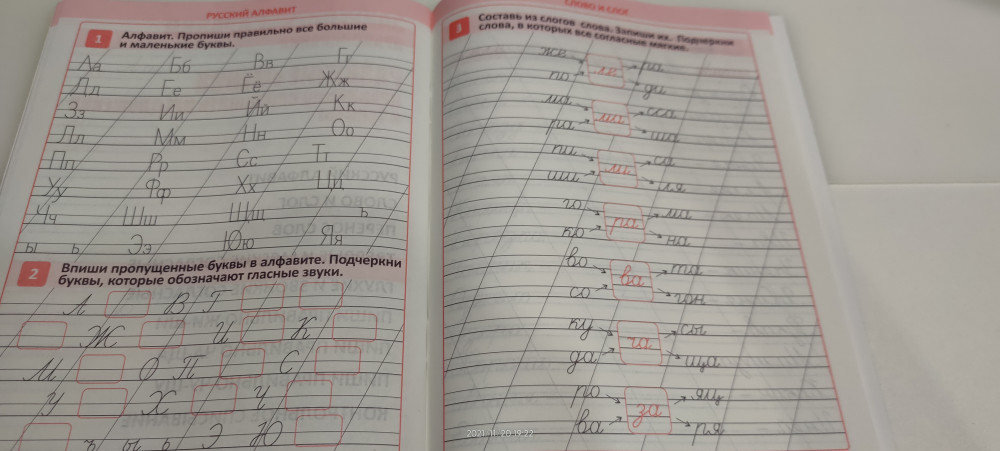 РУССКИЙ АЛФАВИТ
1 Алфавит. Пропиши правильно все большие
и маленькие буквы.
Аа Бб Вв Гг
Дд Ее Ёё Жж
Зз Ии Йй Кк
Лл Мм Нн Оо
Пп Рр Сс Тт
Уу Фф Хх Цц
Чч Шш Щщ ъ
ы ь Ээ Юю Яя
2 Впиши пропущенные буквы в алфавите. Подчеркни
буквы, которые обозначают гласные звуки.
А В Г
Ж И К
М О П С
У Х Ч
ъ ы ь Э Ю
СЛОВО И СЛОГ
3 Составь из слогов слова. Запиши их. Подчеркни
слова, в которых все согласные мягкие.
же ра
по ди
ма сса
ра ми ша
пи са
ши ми ля
го ма
ко ра на
во та
со ва гон
ку сы
да ча ща
ро яц
ва за ря
2021.11.20 19:23